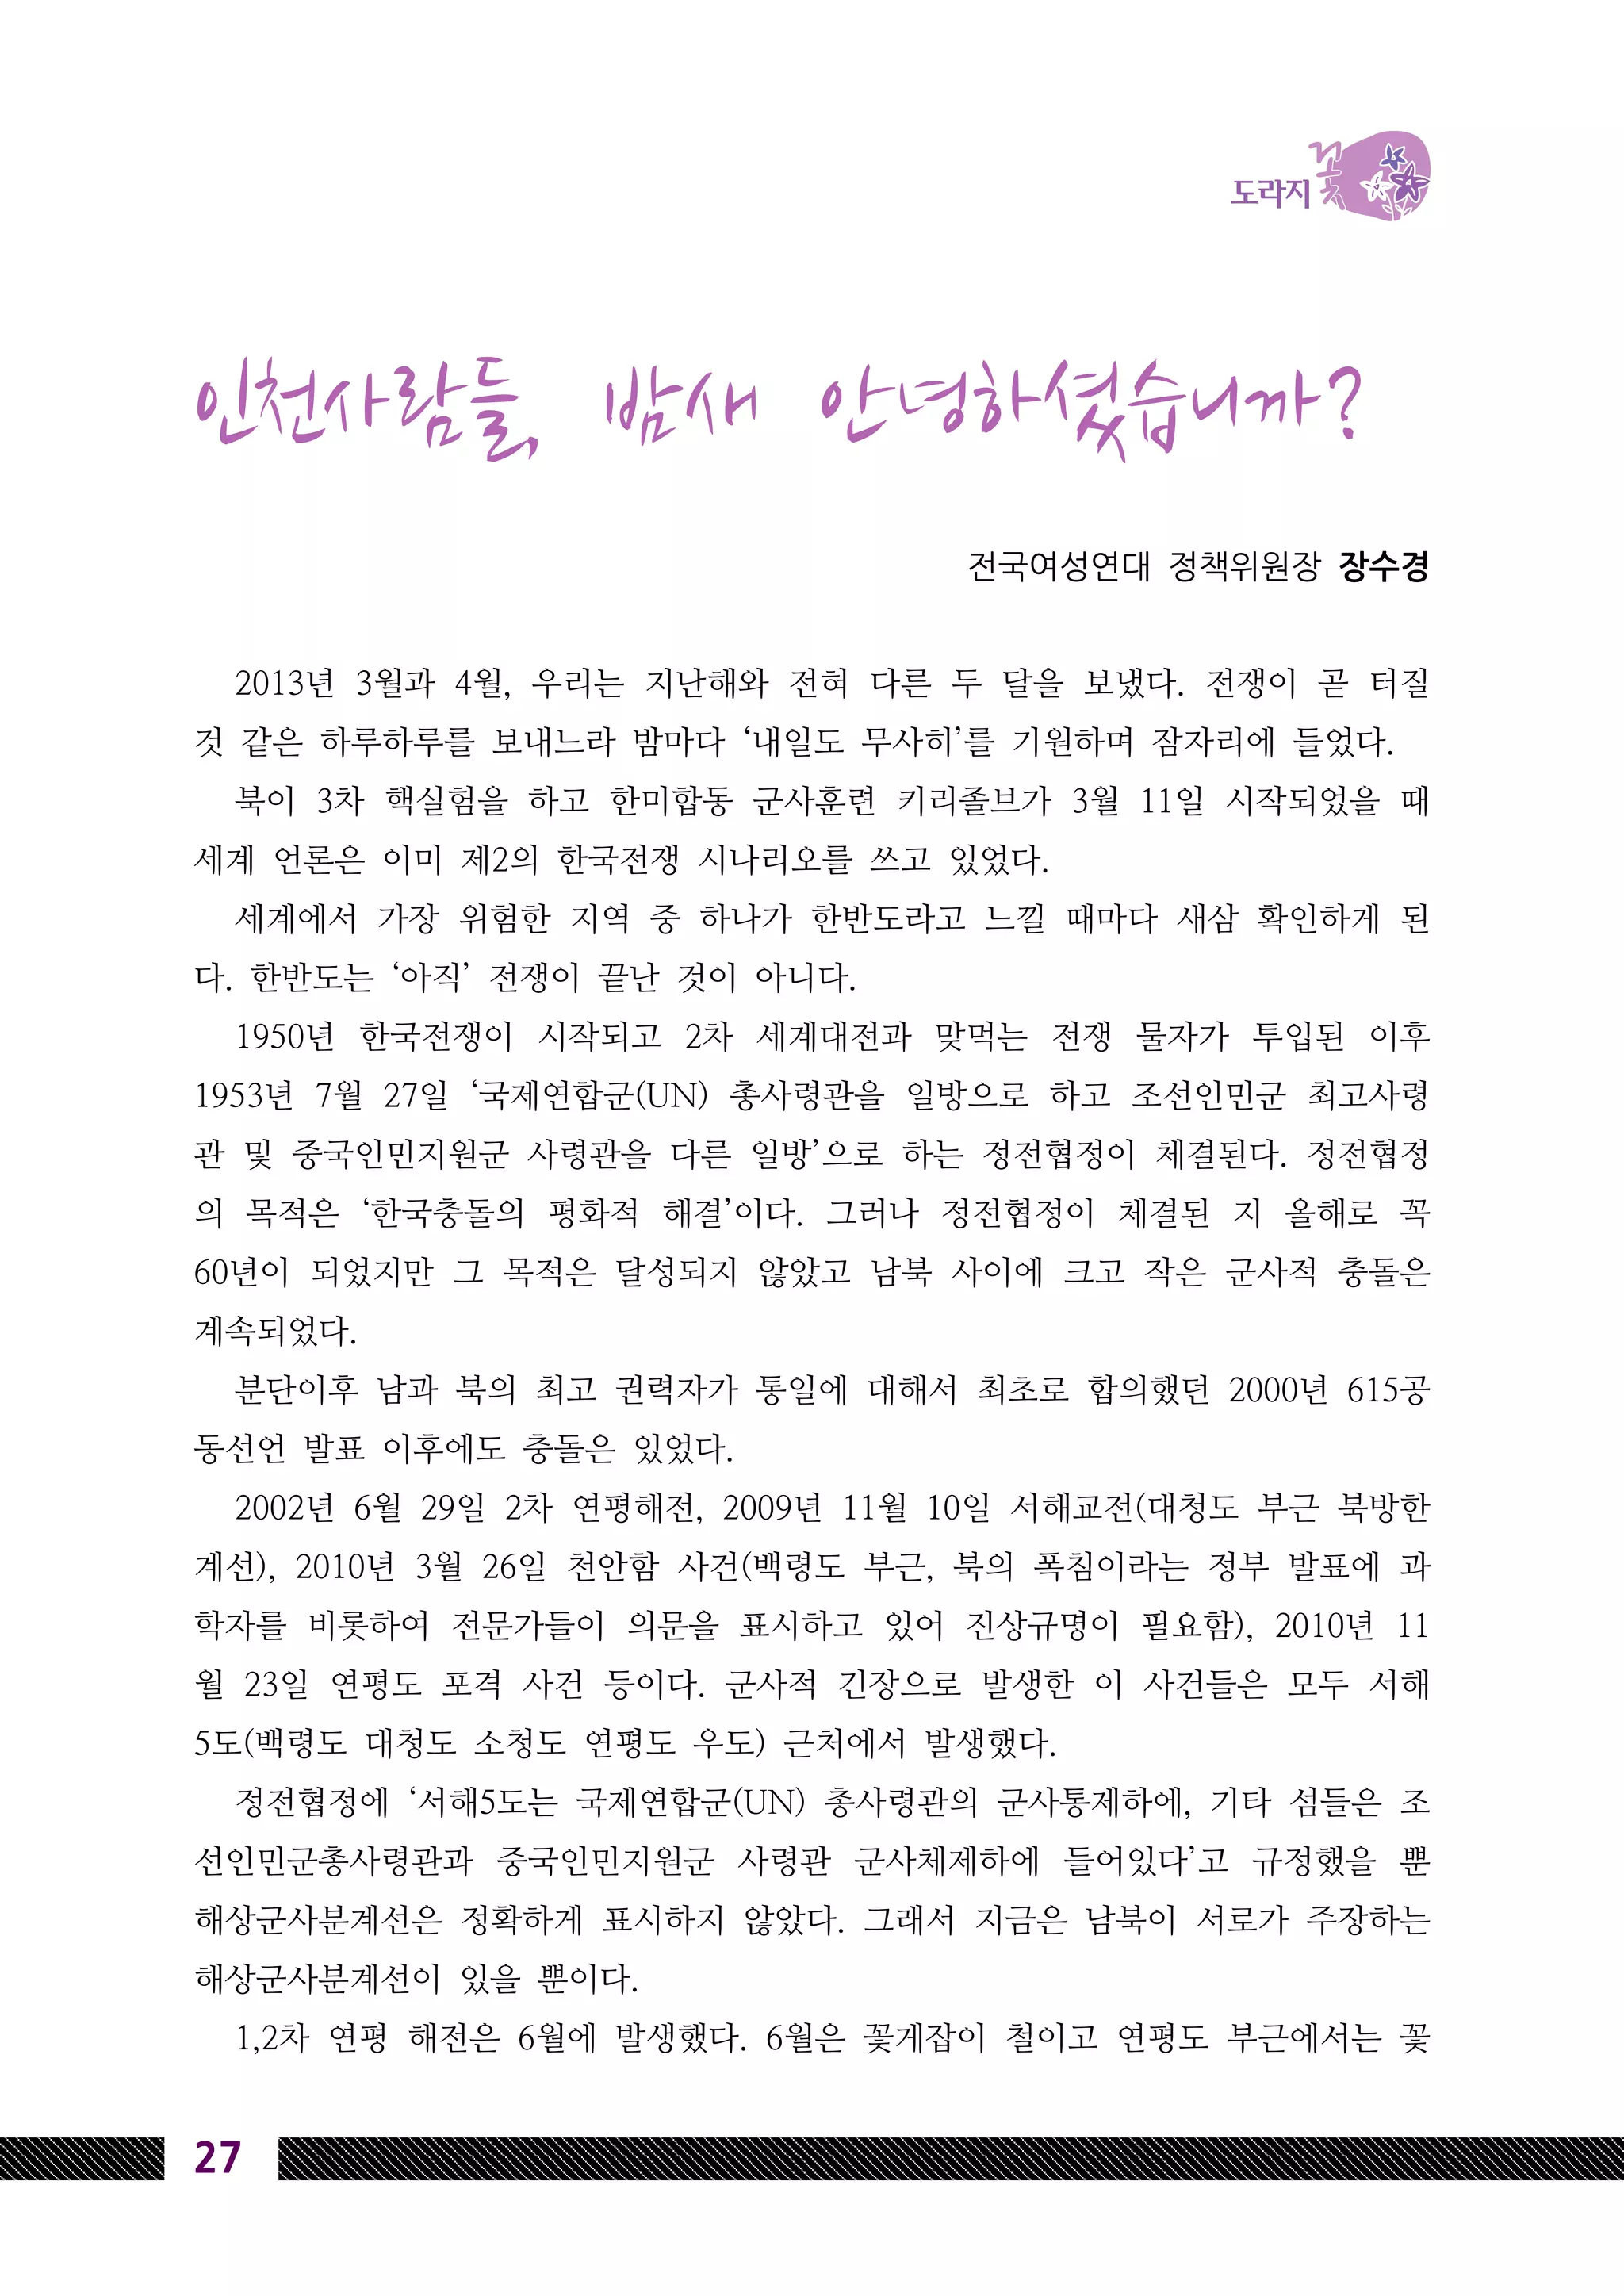 도라지꽃
인천사람들, 밤새 안녕하셨습니까?
전국여성연대 정책위원장 장수경
2013년 3월과 4월, 우리는 지난해와 전혀 다른 두 달을 보냈다. 전쟁이 곧 터질
것 같은 하루하루를 보내느라 밤마다 ‘내일도 무사히’를 기원하며 잠자리에 들었다.
북이 3차 핵실험을 하고 한미합동 군사훈련 키리졸브가 3월 11일 시작되었을 때
세계 언론은 이미 제2의 한국전쟁 시나리오를 쓰고 있었다.
세계에서 가장 위험한 지역 중 하나가 한반도라고 느낄 때마다 새삼 확인하게 된
다. 한반도는 ‘아직’ 전쟁이 끝난 것이 아니다.
1950년 한국전쟁이 시작되고 2차 세계대전과 맞먹는 전쟁 물자가 투입된 이후
1953년 7월 27일 ‘국제연합군(UN) 총사령관을 일방으로 하고 조선인민군 최고사령
관 및 중국인민지원군 사령관을 다른 일방’으로 하는 정전협정이 체결된다. 정전협정
의 목적은 ‘한국충돌의 평화적 해결’이다. 그러나 정전협정이 체결된 지 올해로 꼭
60년이 되었지만 그 목적은 달성되지 않았고 남북 사이에 크고 작은 군사적 충돌은
계속되었다.
분단이후 남과 북의 최고 권력자가 통일에 대해서 최초로 합의했던 2000년 615공
동선언 발표 이후에도 충돌은 있었다.
2002년 6월 29일 2차 연평해전, 2009년 11월 10일 서해교전(대청도 부근 북방한
계선), 2010년 3월 26일 천안함 사건(백령도 부근, 북의 폭침이라는 정부 발표에 과
학자를 비롯하여 전문가들이 의문을 표시하고 있어 진상규명이 필요함), 2010년 11
월 23일 연평도 포격 사건 등이다. 군사적 긴장으로 발생한 이 사건들은 모두 서해
5도(백령도 대청도 소청도 연평도 우도) 근처에서 발생했다.
정전협정에 ‘서해5도는 국제연합군(UN) 총사령관의 군사통제하에, 기타 섬들은 조
선인민군총사령관과 중국인민지원군 사령관 군사체제하에 들어있다’고 규정했을 뿐
해상군사분계선은 정확하게 표시하지 않았다. 그래서 지금은 남북이 서로가 주장하는
해상군사분계선이 있을 뿐이다.
1,2차 연평 해전은 6월에 발생했다. 6월은 꽃게잡이 철이고 연평도 부근에서는 꽃
27